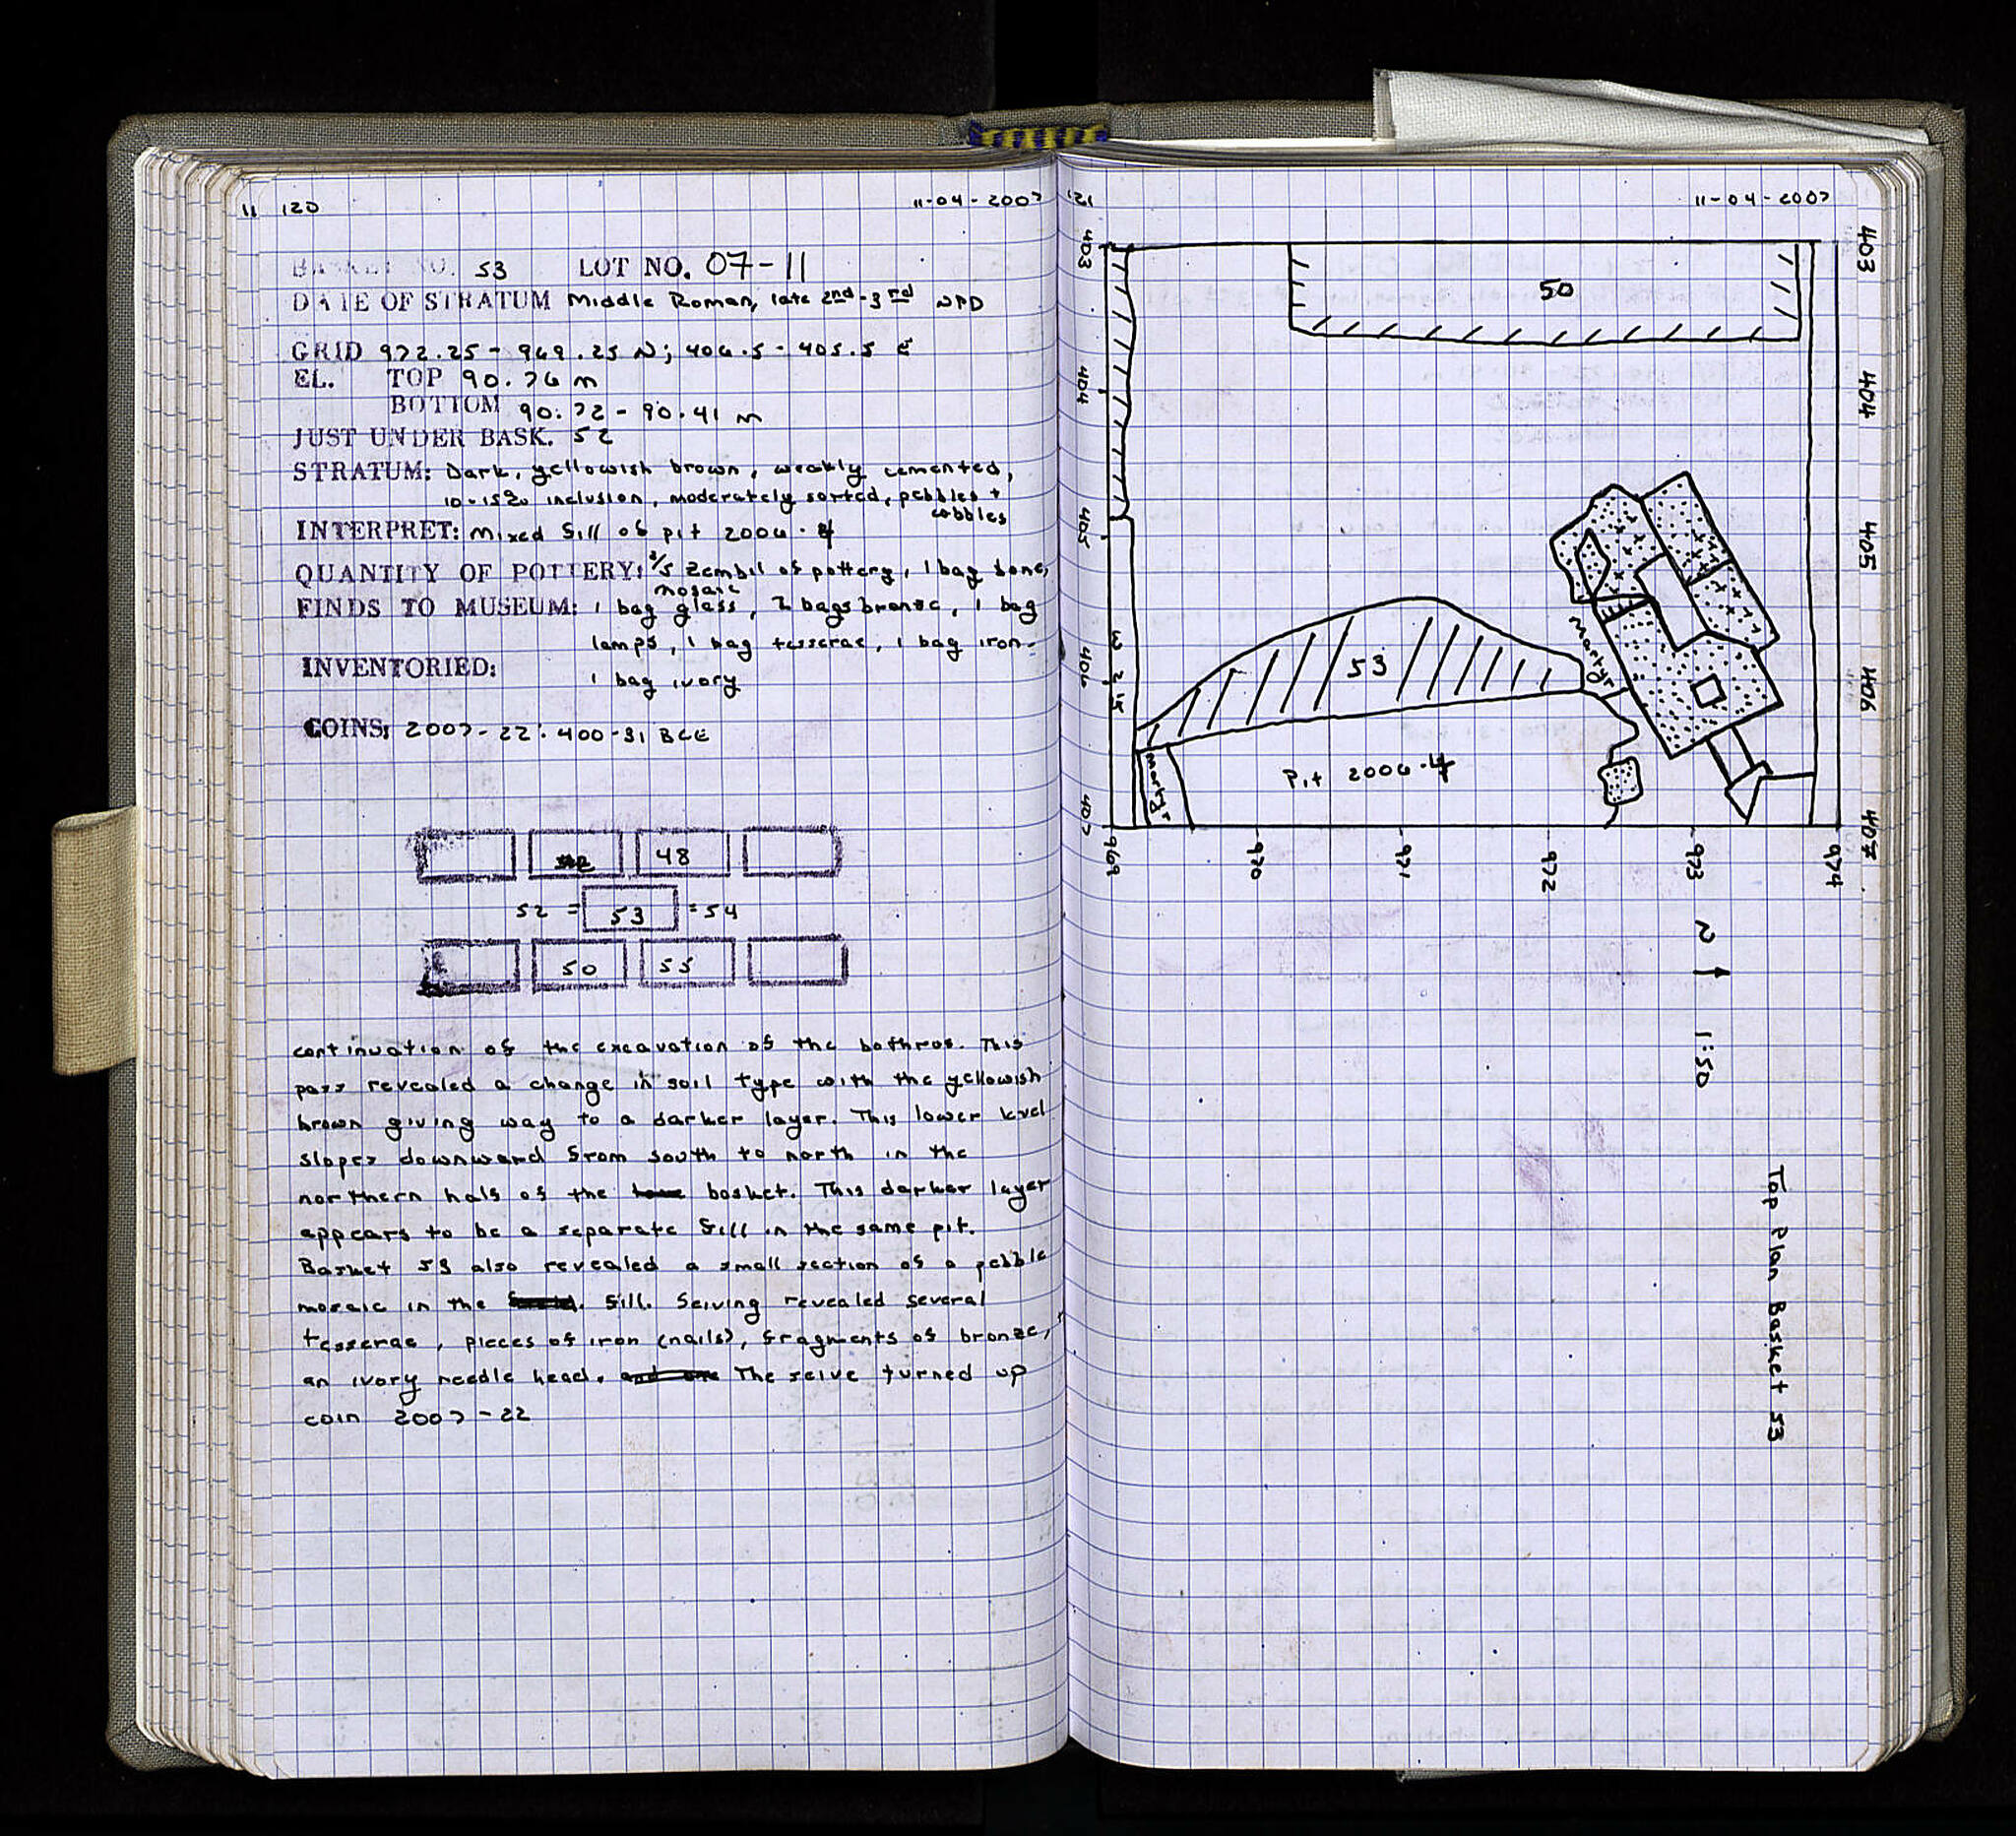 11 120 11-04-2007
BASKET NO. 53 LOT NO. 07-11
DATE OF STRATUM Middle Roman, late 2nd-3rd NPD
GRID 972.25 - 969.25 N; 406.5 - 405.5 E
EL. TOP 90.76 m
BOTTOM 90.72 - 90.41 m
JUST UNDER BASK. 52
STRATUM: Dark, yellowish brown, weakly cemented,
10-15% inclusion, moderately sorted, pebbles +
cobbles
INTERPRET: Mixed fill of pit 2006.4
QUANTITY OF POTTERY: 2/5 zembil of pottery, 1 bag bone,
mosaic
FINDS TO MUSEUM: 1 bag glass, 2 bags bronze, 1 bag
lamps, 1 bag tesserae, 1 bag iron
INVENTORIED: 1 bag ivory
COINS: 2007-22: 400-31 BCE
48
52 = 53 = 54
50 55
continuation of the excavation of the bothros. This
pass revealed a change in soil type with the yellowish
brown giving way to a darker layer. This lower level
slopes downward from south to north in the
northern half of the basket. This darker layer
appears to be a separate fill in the same pit.
Basket 53 also revealed a small section of a pebble
mosaic in the fill. Seiving revealed several
tesserae, pieces of iron (nails), fragments of bronze,
an ivory needle head. The seive turned up
coin 2007-22
121 11-04-2007
403 404 405 406 407
403 404 405 406 407
50
53
Martyr
W 2 15
Martyr
Pit 2006.4
969 970 971 972 973 974
N
1:50
Top Plan Basket 53